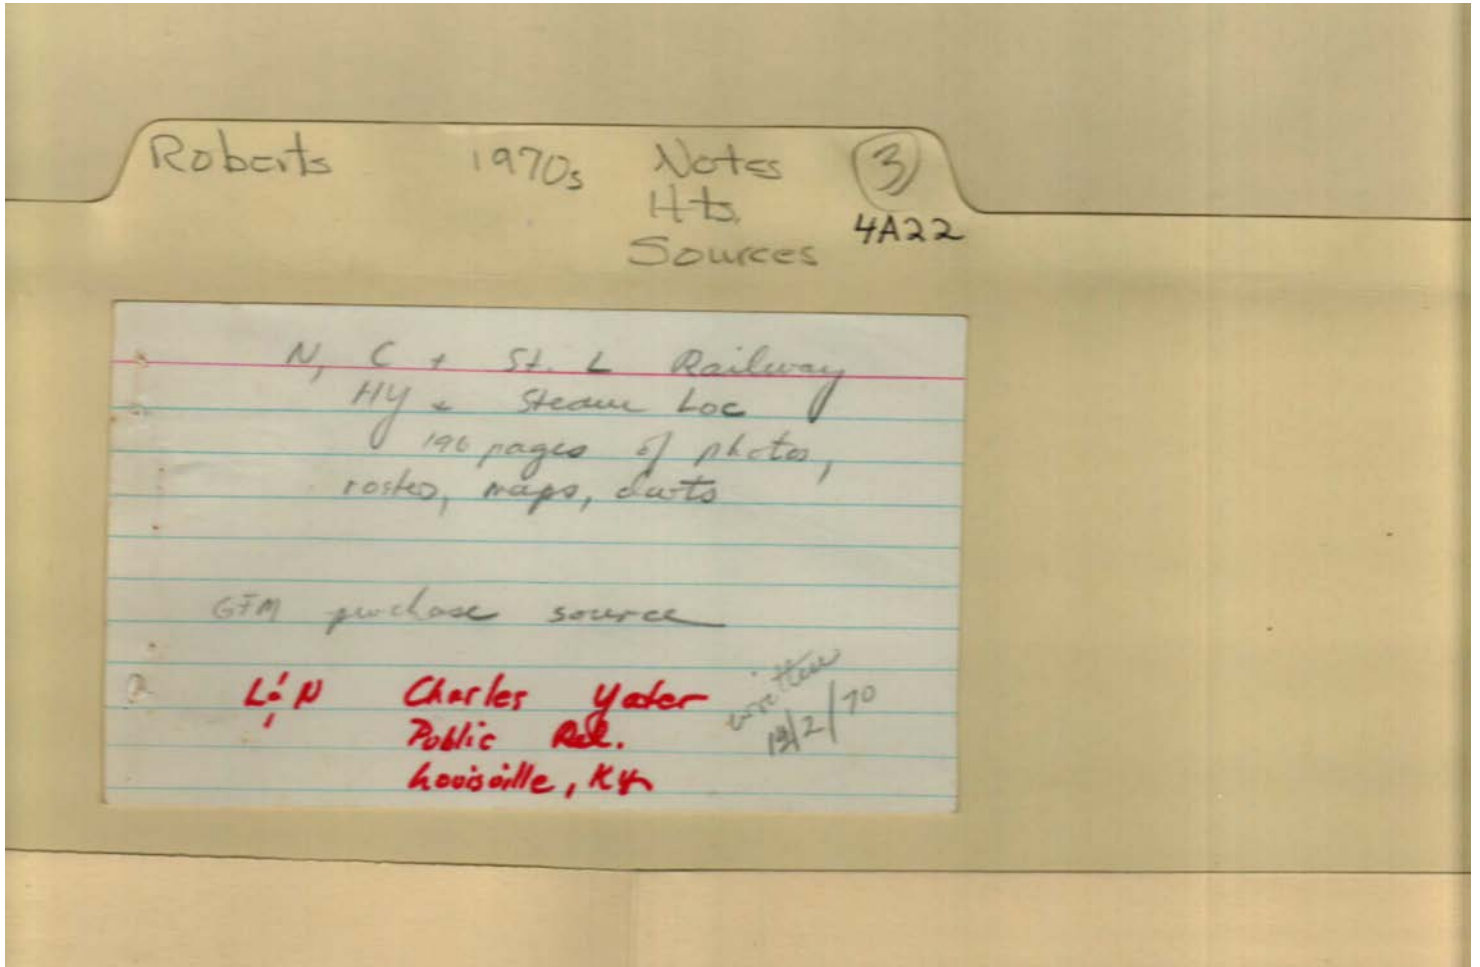 Roberts 1970s Notes ③
Hts.
Sources 4A22
N, C + St. L Railway
Hy + Steam Loc
196 pages of photos,
roster, maps, charts
GFM purchase source
L&N Charles Yater
Public Rel.
Louisville, Ky
written
/2/70